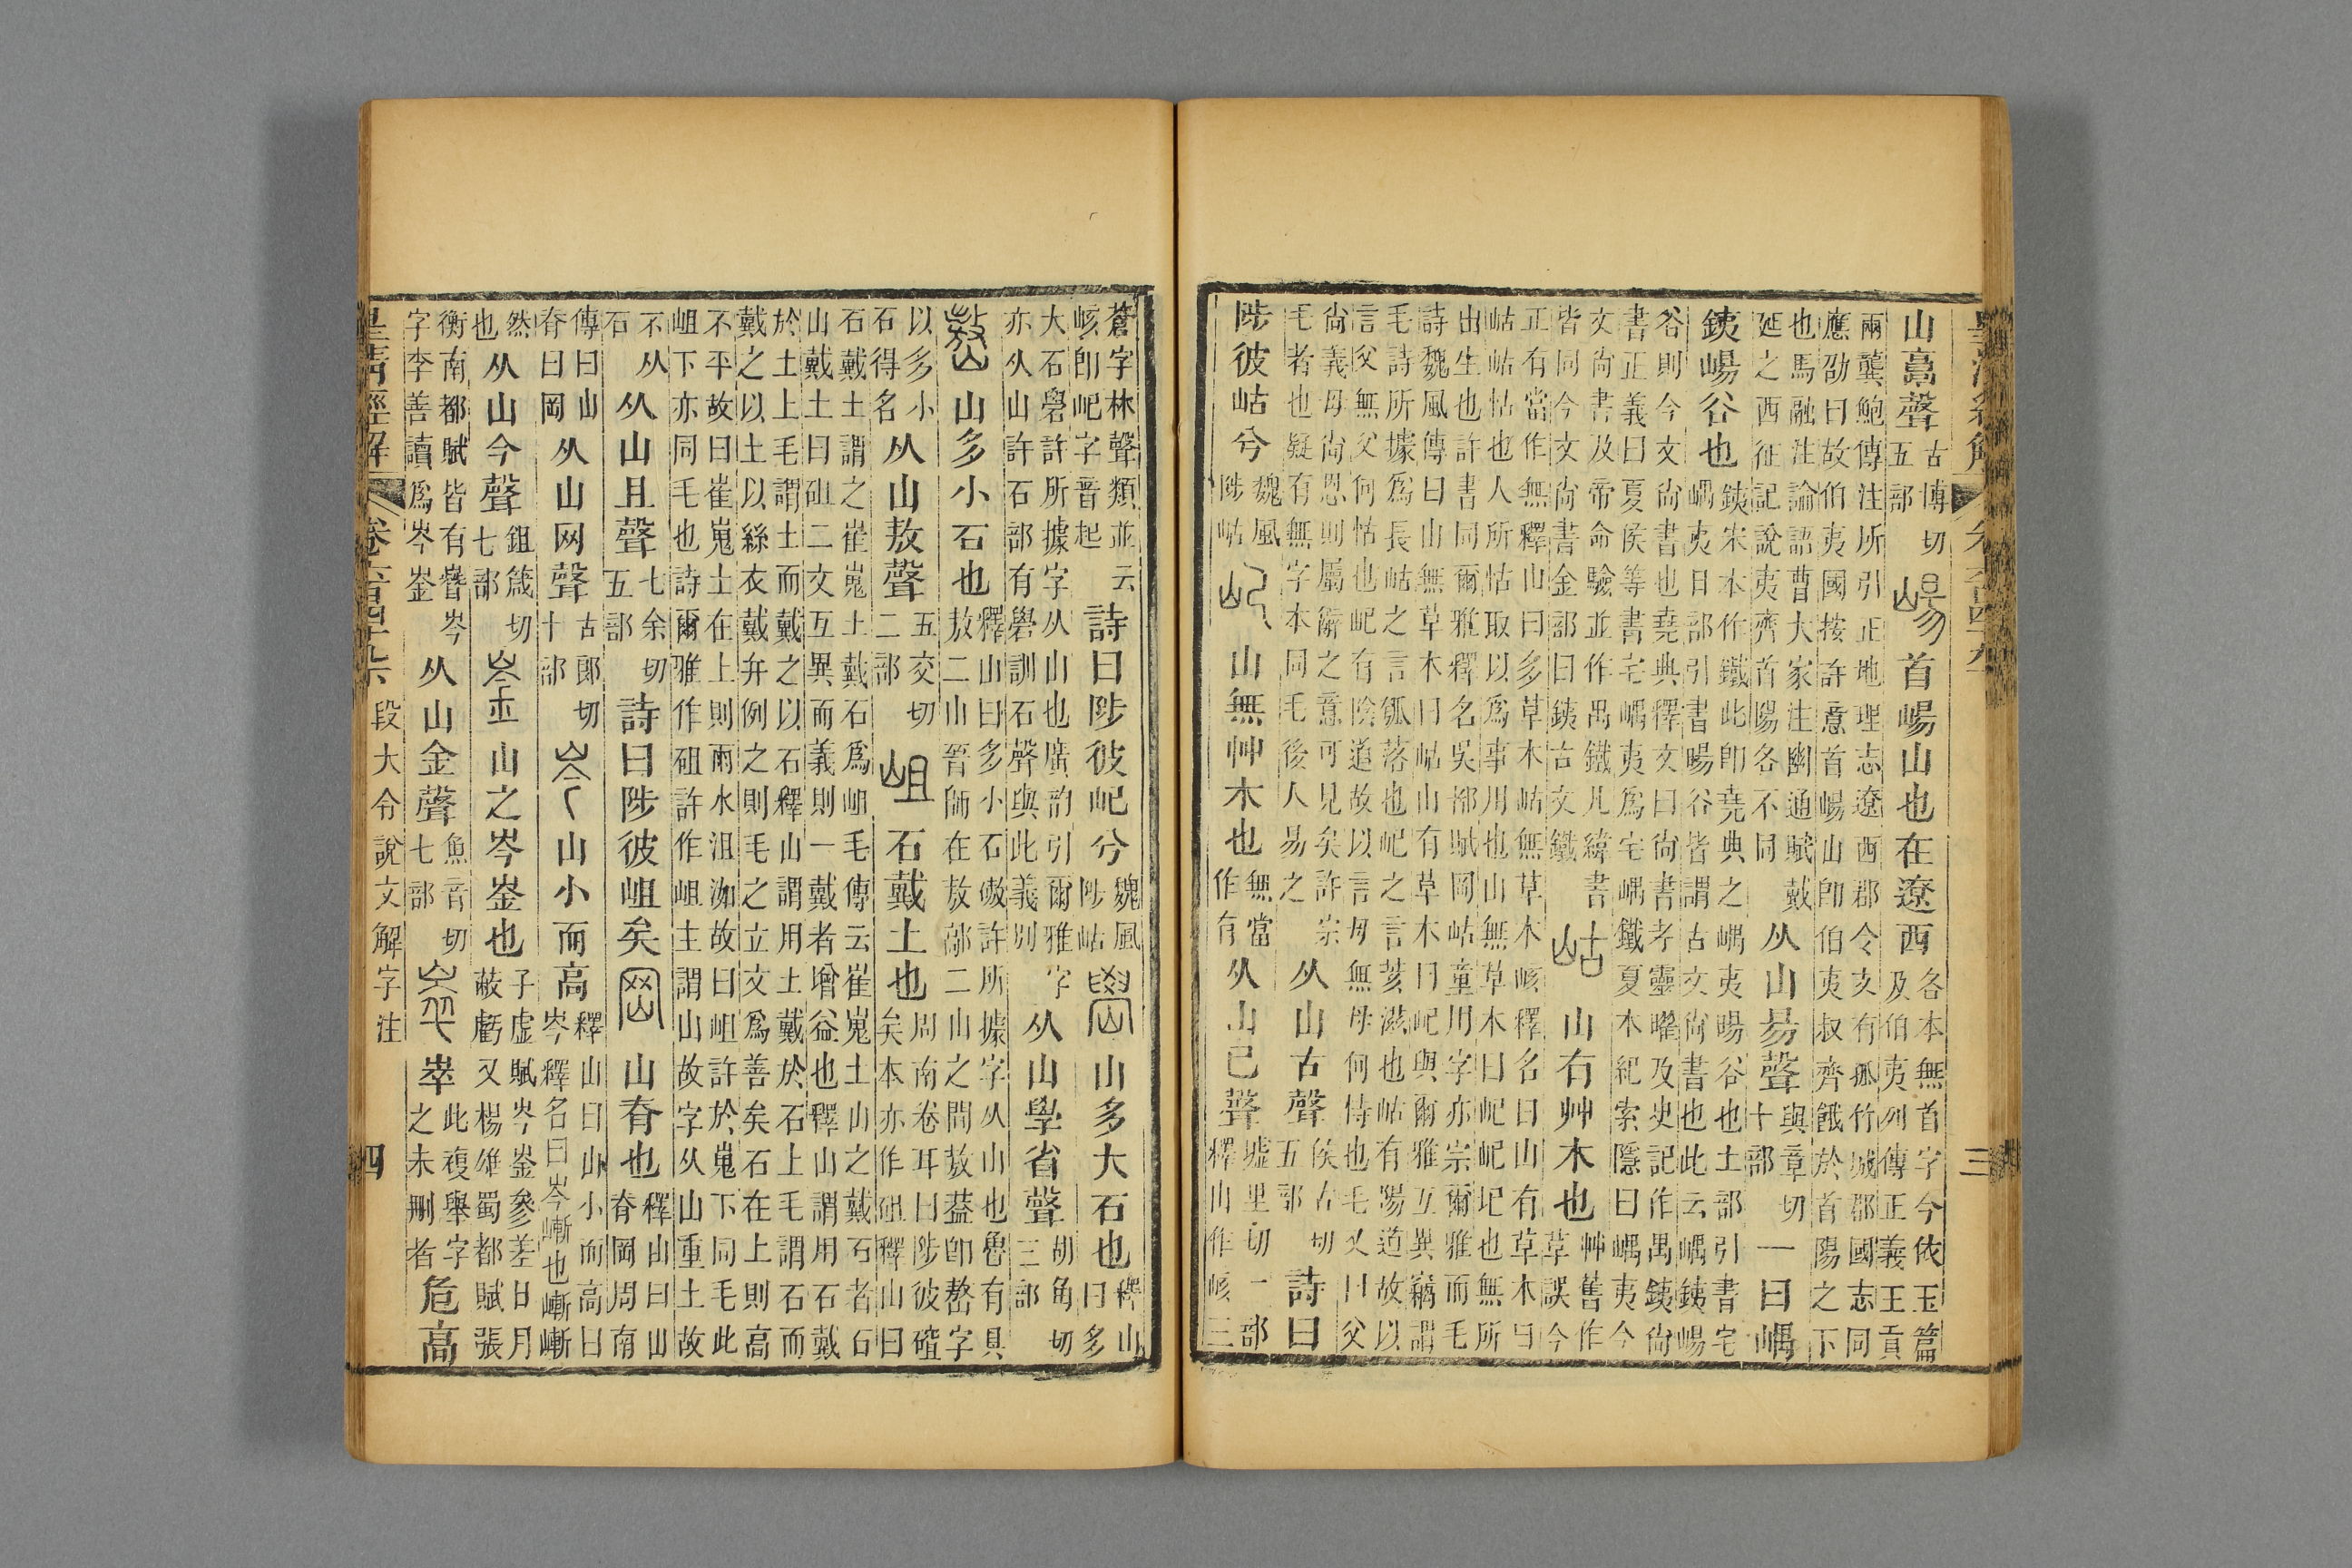 皇清經解 卷六百四十九 三
山𩫏聲古博切五部崵首崵山也在遼西各本無首字今依玉篇及伯夷列傳正義王貢
兩龔鮑傳注所引正地理志遼西郡令支有孤竹城郡國志同
應劭曰故伯夷國按許意首崵山卽伯夷叔齊餓於首陽之下
也馬融注論語曹大家注幽通賦戴延之西征記說夷齊首陽各不同从山昜聲與章切十部一曰嵎
銕崵谷也銕宋本作鐵此卽堯典之嵎夷暘谷也土部引書宅嵎夷日部引書暘谷皆謂古文尙書也此云嵎銕崵
谷則今文尙書也堯典釋文曰尙書考靈曜及史記作禺銕尙
書正義曰夏侯等書宅嵎夷爲宅嵎鐵夏本紀索隱曰嵎夷今
文尙書及帝命驗並作禺鐵凡緯書皆同今文尙書金部曰銕古文鐵岵山有艸木也艸舊作草誤今
正有當作無釋山曰多草木岵無草木峐釋名曰山有草木曰
岵岵怙也人所怙取以爲事用也山無草木曰屺屺圮也無所
出生也許書同爾雅釋名吳都賦岡岵童用字亦宗爾雅而毛
詩魏風傳曰山無草木曰岵山有草木曰屺與爾雅互異竊謂
毛詩所據爲長岵之言瓠落也屺之言荄滋也岵有陽道故以
言父無父何怙也屺有陰道故以言母無母何恃也毛又曰父
尙義母尙恩則屬辭之意可見矣許宗毛者也疑有無字本同毛後人易之从山古聲侯古切五部詩曰
陟彼岵兮魏風陟岵屺山無艸木也無當作有从山己聲墟里切一部釋山作峐三
蒼字林聲類並云峐卽屺字音起詩曰陟彼屺兮魏風陟岵嶨山多大石也釋山曰多
大石礐許所據字从山也廣韵引爾雅字亦从山許石部有礐訓石聲與此義別从山學省聲胡角切三部
嶅山多小石也釋山曰多小石磝許所據字从山也魯有具敖二山晉師在敖鄗二山之閒敖葢卽嶅字
以多小石得名从山敖聲五交切二部岨石戴土也周南卷耳曰陟彼砠矣本亦作砠釋山曰
石戴土謂之崔嵬土戴石爲岨毛傳云崔嵬土山之戴石者石
山戴土曰砠二文互異而義則一戴者增益也釋山謂用石戴
於土上毛謂土而戴之以石釋山謂用土戴於石上毛謂石而
戴之以土以絲衣戴弁例之則毛之立文爲善矣石在上則高
不平故曰崔嵬土在上則雨水沮洳故曰岨許於嵬下同毛此
岨下亦同毛也詩爾雅作砠許作岨主謂山故字从山重土故
不从石从山且聲七余切五部詩曰陟彼岨矣岡山脊也釋山曰山脊岡周南
傳曰山脊曰岡从山网聲古郎切十部岑山小而高釋山曰山小而高曰岑釋名曰岑嶃也嶃嶃
然也从山今聲鉏箴切七部崟山之岑崟也子虛賦岑崟參差日月蔽虧又楊雄蜀都賦張
衡南都賦皆有嶜岑字李善讀爲岑崟从山金聲魚音切七部崒崒此複舉字之未刪者危高
皇清經解 卷六百四十 段大令說文解字注 四